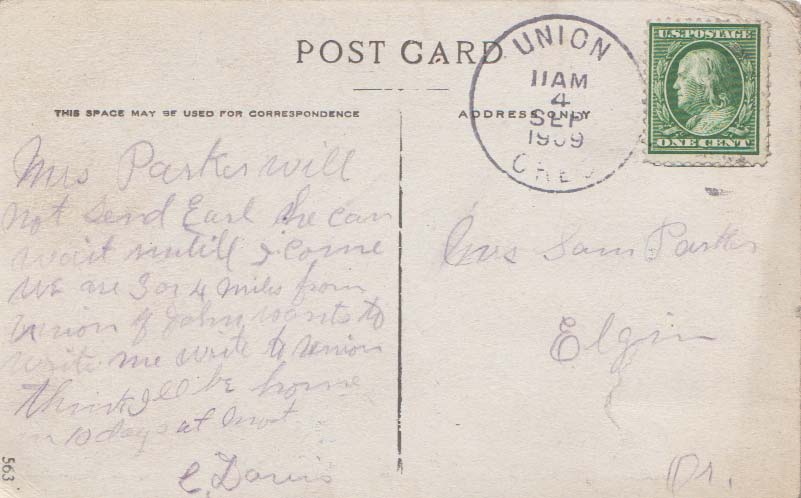 POST CARD
UNION
11AM
4
SEP
1909
OREG
U.S. POSTAGE
ONE CENT
THIS SPACE MAY BE USED FOR CORRESPONDENCE
ADDRESS ONLY
Mrs Parker will
not send Earl he can
wait untill I come
We are 3 or 4 miles from
Union if John wants to
write me write to Union
think I ll be home
in 10 days at most
C. Davis
Mrs Sam Parker
Elgin
Or.
563